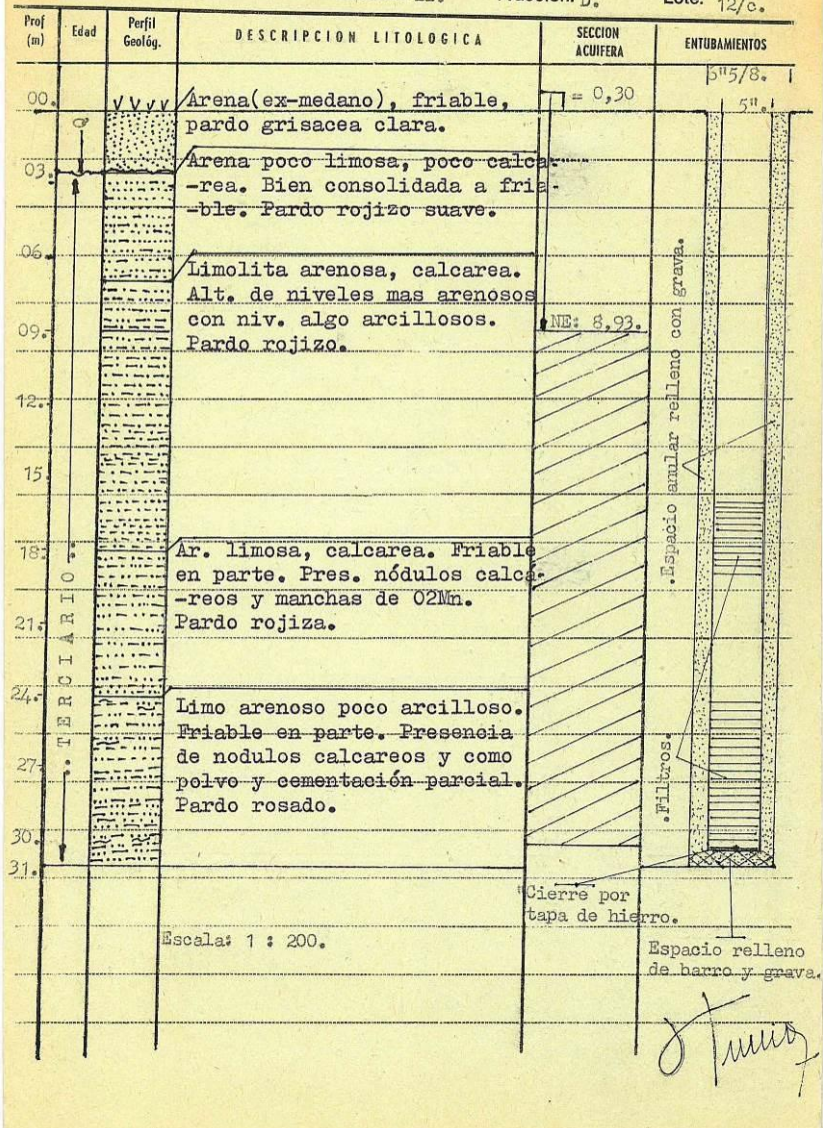 Fracción: D. Lote. 12/c.
Prof (m)
Edad
Perfil Geológ.
DESCRIPCION LITOLOGICA
SECCION ACUIFERA
ENTUBAMIENTOS
5/8.
5".
= 0,30
00.
03.
06.
09.
12.
15.
18.
21.
24.
27.
30.
31.
Q
TERCIARIO
Arena(ex-medano), friable,
pardo grisacea clara.
Arena poco limosa, poco calca-
-rea. Bien consolidada a fria-
-ble. Pardo rojizo suave.
Limolita arenosa, calcarea.
Alt. de niveles mas arenosos
con niv. algo arcillosos.
Pardo rojizo.
NE: 8,93.
Ar. limosa, calcarea. Friable
en parte. Pres. nódulos calcá-
-reos y manchas de O2Mn.
Pardo rojiza.
Limo arenoso poco arcilloso.
Friable en parte. Presencia
de nodulos calcareos y como
polvo y cementación parcial.
Pardo rosado.
.Espacio anular relleno con grava.
.Filtros.
Cierre por
tapa de hierro.
Espacio relleno
de barro y grava.
Escala: 1 : 200.